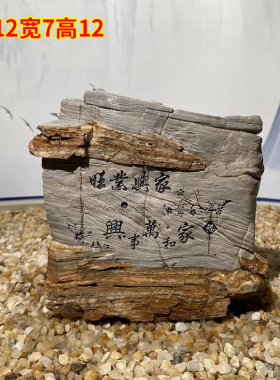 12宽7高12
旺業興家
興事萬和家